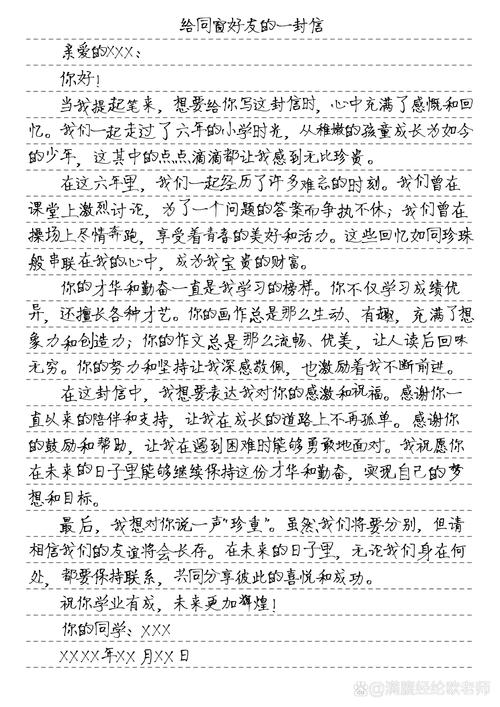 给同窗好友的一封信
亲爱的XXX：
你好！
当我提起笔来，想要给你写这封信时，心中充满了感慨和回
忆。我们一起走过了六年的小学时光，从稚嫩的孩童成长为如今
的少年，这其中的点点滴滴都让我感到无比珍贵。
在这六年里，我们一起经历了许多难忘的时刻。我们曾在
课堂上激烈讨论，为了一个问题的答案而争执不休；我们曾在
操场上尽情奔跑，享受着青春的美好和活力。这些回忆如同珍珠
般串联在我的心中，成为我宝贵的财富。
你的才华和勤奋一直是我学习的榜样。你不仅学习成绩优
异，还擅长各种才艺。你的画作总是那么生动、有趣，充满了想
象力和创造力；你的作文总是那么流畅、优美，让人读后回味
无穷。你的努力和坚持让我深感敬佩，也激励着我不断前进。
在这封信中，我想要表达我对你的感激和祝福。感谢你一
直以来的陪伴和支持，让我在成长的道路上不再孤单。感谢你
的鼓励和帮助，让我在遇到困难时能够勇敢地面对。我祝愿你
在未来的日子里能够继续保持这份才华和勤奋，实现自己的梦
想和目标。
最后，我想对你说一声“珍重”。虽然我们将要分别，但请
相信我们的友谊将会长存。在未来的日子里，无论我们身在何
处，都要保持联系，共同分享彼此的喜悦和成功。
祝你学业有成，未来更加辉煌！
你的同学：XXX
XXXX年XX月XX日
满腹经纶欧老师